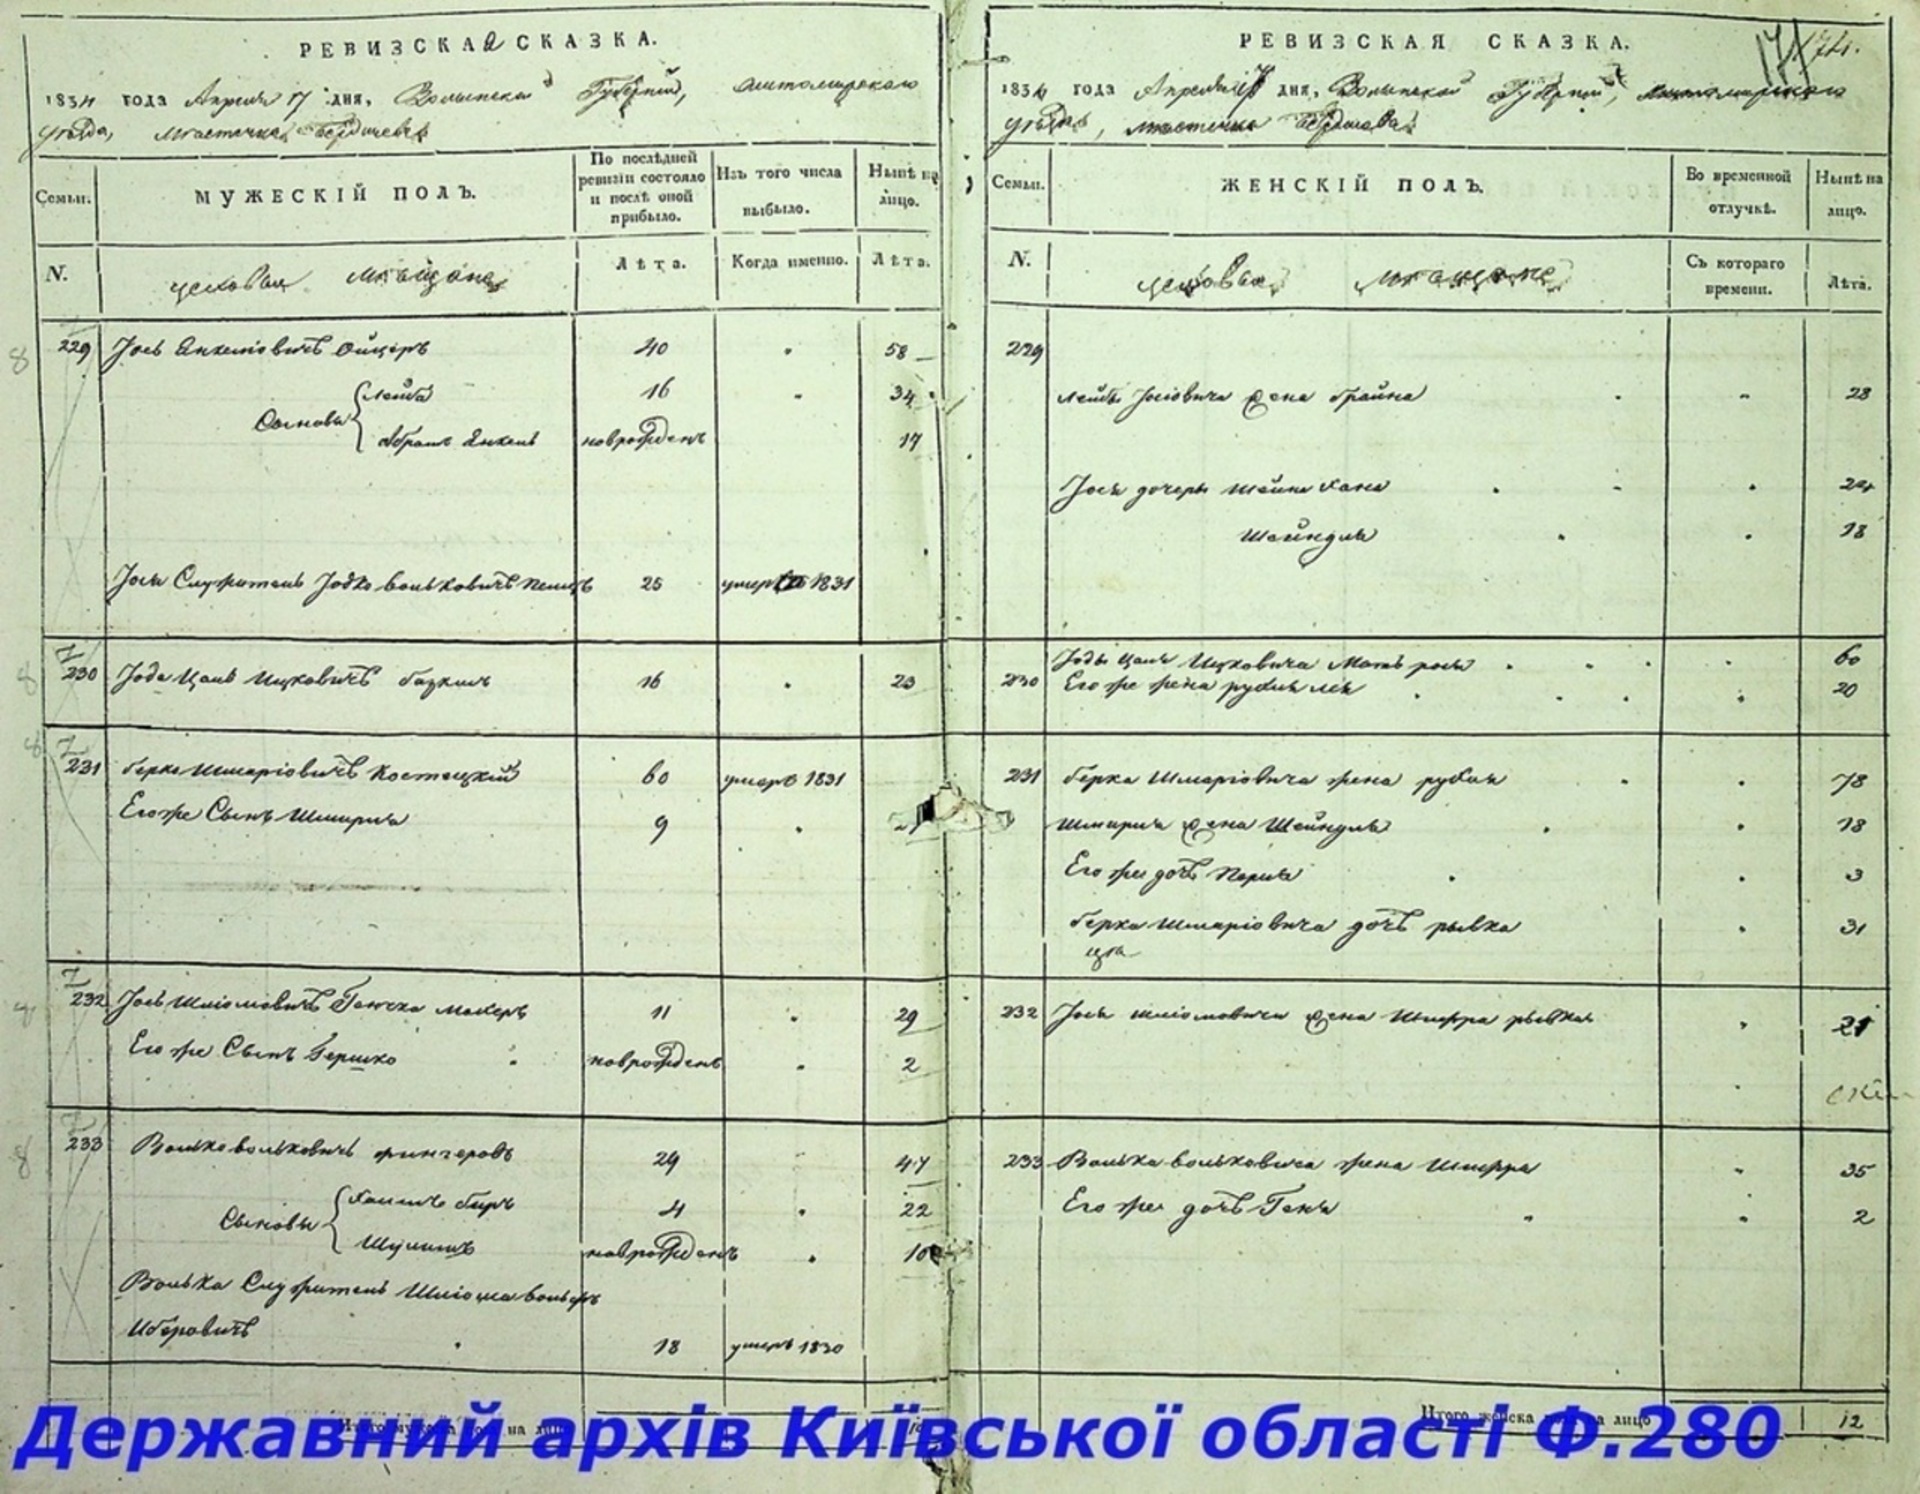 РЕВИЗСКАЯ СКАЗКА.
1834 года Апреля 17 дня, Волынской Губерніи, Житомирского
уѣзда, мѣстечка Бердичева
Семьи. МУЖЕСКІЙ ПОЛЪ. По послѣдней ревизіи состояло и послѣ оной прибыло. Изъ того числа выбыло. Нынѣ на лицо.
N. цеховыя мѣщане Лѣта. Когда именно. Лѣта.
229 Іось Янкелiовичъ 40 58
Сыновья Лейба 16 34
Абрамъ Янкель новорожденъ 17
Іося Служитель Іодко Вольковичъ 25 умеръ 1831
230 Іода Цаль Ицковичъ 16 23
231 Берко Шмаріовичъ Костецкий 60 умеръ 1831
Его же Сынъ Шмариа 9
232 Іось Шліомовичъ 11 29
Его же Сынъ Гершко новорожденъ 2
233 Волько Вольковичъ Фингеровъ 29 47
Сыновья Хаимъ Беръ 4 22
Шулимъ новорожденъ 10
Волька Служитель Шліома Вольфъ
18 умеръ 1830
РЕВИЗСКАЯ СКАЗКА.
174.
1834 года Апреля 17 дня, Волынской Губерніи, Житомирского
уѣзда, мѣстечка Бердичева
Семьи. ЖЕНСКІЙ ПОЛЪ. Во временной отлучкѣ. Нынѣ на лицо.
N. цеховыя мѣщане Съ котораго времени. Лѣта.
229
Лейбы Іосiовича жена Фрайна 28
Іося дочери Шейна Хана 24
Шейндля 18
230 Іоды Цаля Ицковича Мать 60
Его же жена Рухля Лея 20
231 Берка Шмаріовича жена Рухля 78
Шмариа жена Шейндля 18
Его же дочь Перля 3
Берка Шмаріовича дочь Рывка 31
232 Іося Шліомовича жена Шифра Рывка 21
233 Волька Вольковича жена Шифра 35
Его же дочь Геня 2
Итого женска пола на лицо 12
Державний архів Київської області Ф.280